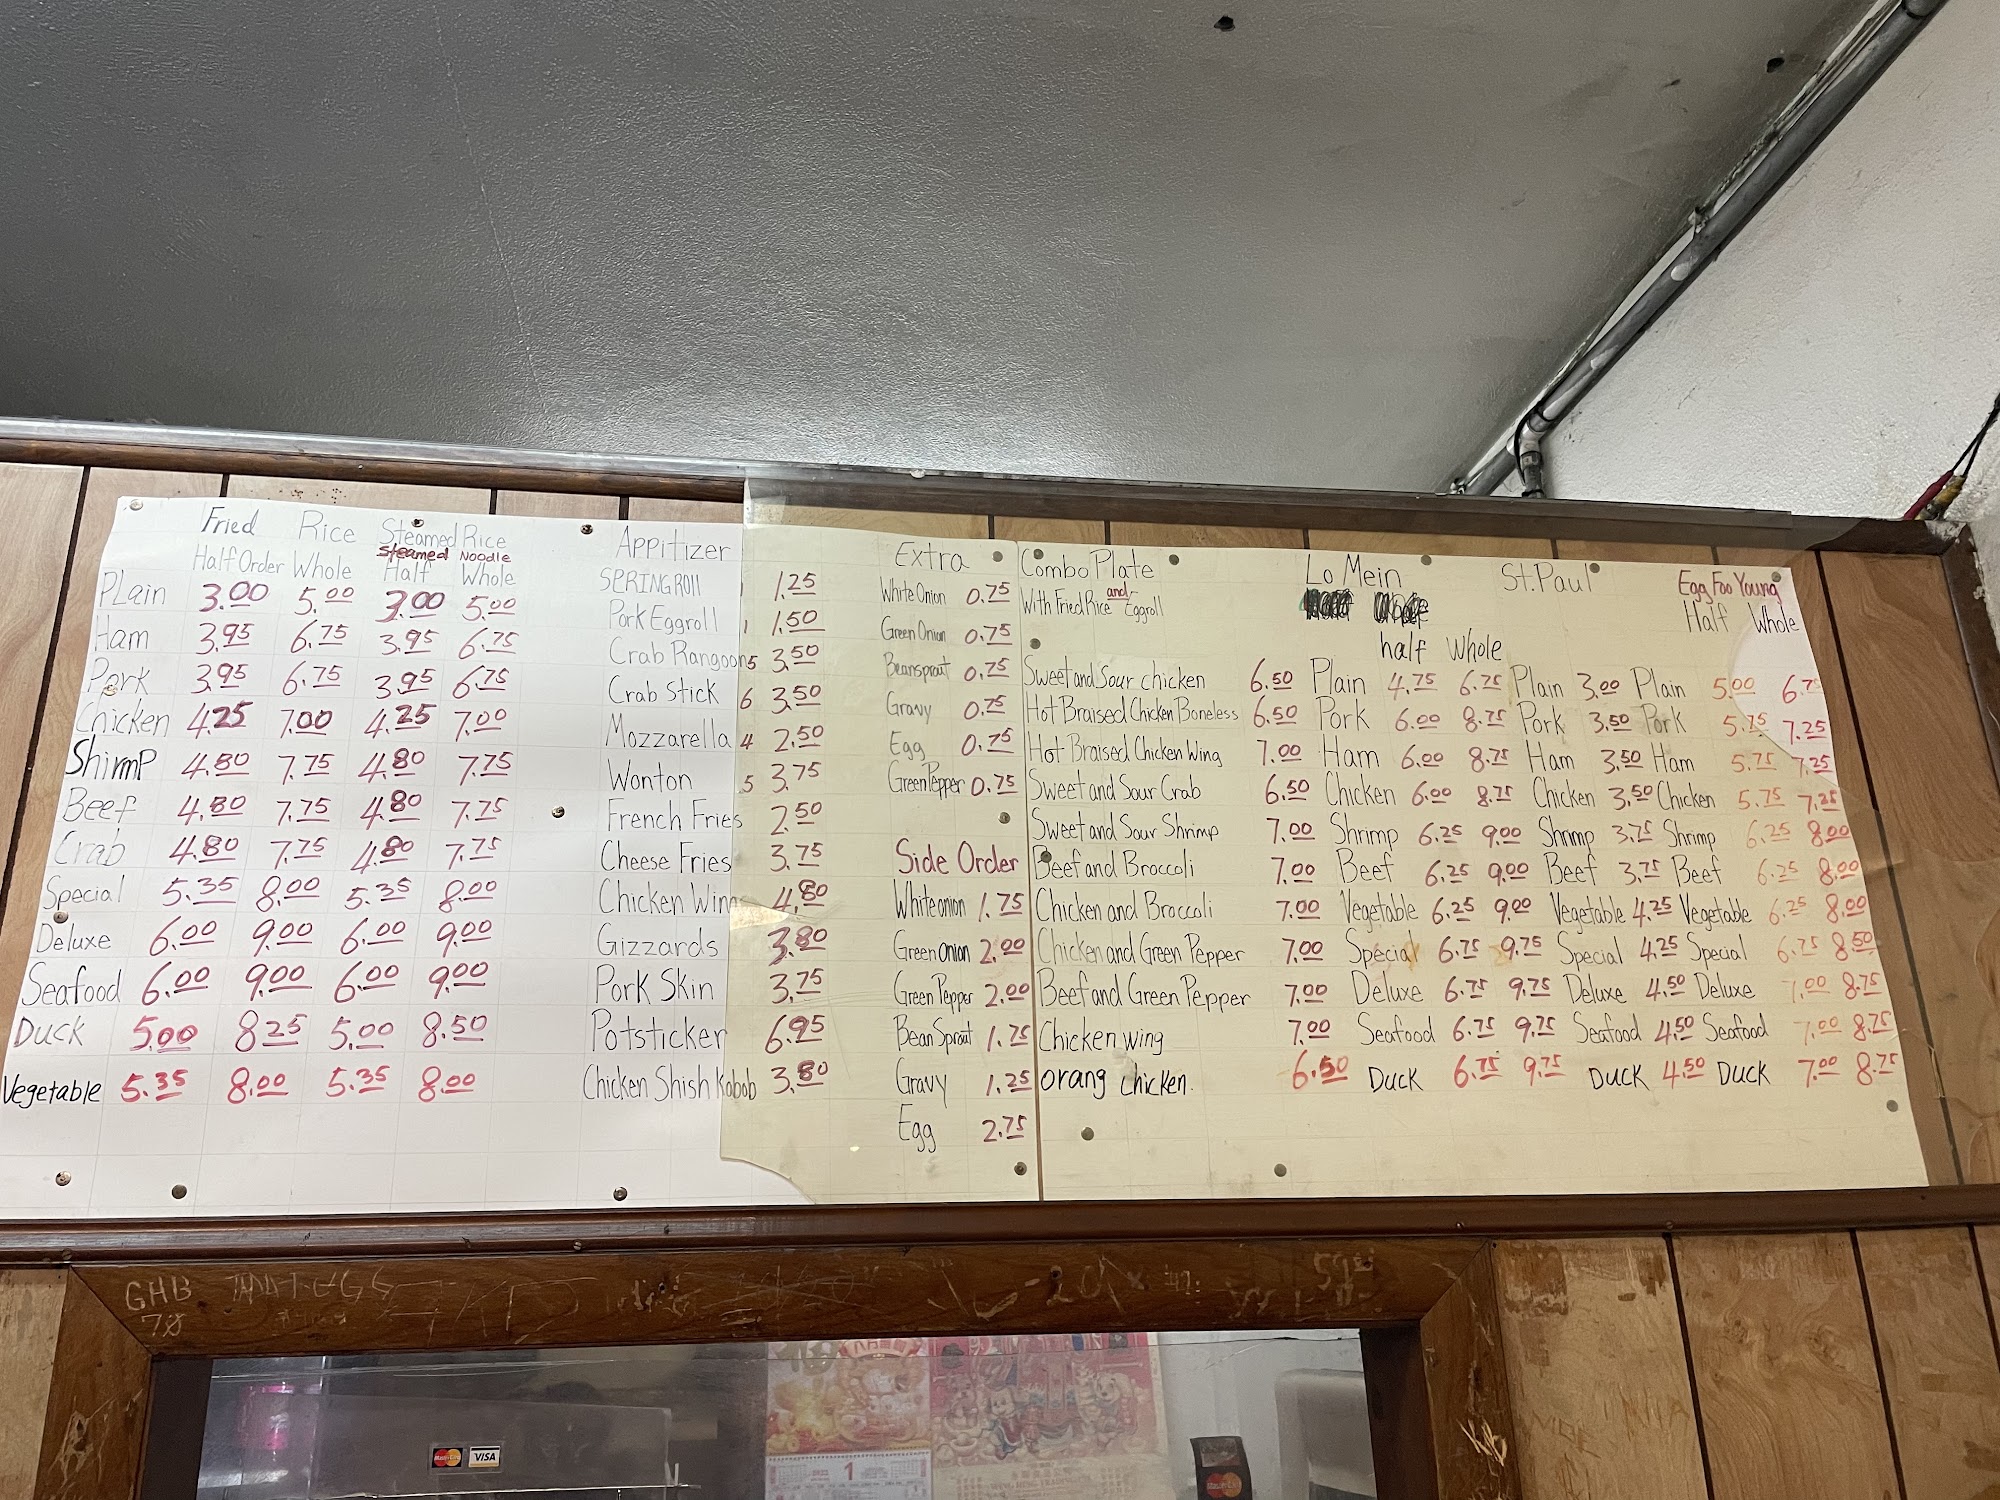 Fried Rice Steamed Rice
Steamed Noodle
Half Order Whole Half Whole
PLain 3.00 5.00 3.00 5.00
Ham 3.95 6.75 3.95 6.75
Pork 3.95 6.75 3.95 6.75
Chicken 4.25 7.00 4.25 7.00
ShirmP 4.80 7.75 4.80 7.75
Beef 4.80 7.75 4.80 7.75
Crab 4.80 7.75 4.80 7.75
Special 5.35 8.00 5.35 8.00
Deluxe 6.00 9.00 6.00 9.00
Seafood 6.00 9.00 6.00 9.00
Duck 5.00 8.25 5.00 8.50
Vegetable 5.35 8.00 5.35 8.00
Appitizer
SPRING ROll 1.25
Pork Eggroll 1 1.50
Crab Rangoon 5 3.50
Crab Stick 6 3.50
Mozzarella 4 2.50
Wonton 5 3.75
French Fries 2.50
Cheese Fries 3.75
Chicken Wing 4.80
Gizzards 3.80
Pork Skin 3.75
Potsticker 6.95
Chicken Shish Kobob 3.80
Extra
White Onion 0.75
Green Onion 0.75
Beansprout 0.75
Gravy 0.75
Egg 0.75
Green Pepper 0.75
Side Order
White onion 1.75
Green Onion 2.00
Green Pepper 2.00
Bean Sprout 1.75
Gravy 1.25
Egg 2.75
Combo Plate
With Fried Rice and Eggroll
Sweet and Sour chicken 6.50
Hot Braised Chicken Boneless 6.50
Hot Braised Chicken Wing 7.00
Sweet and Sour Crab 6.50
Sweet and Sour Shrimp 7.00
Beef and Broccoli 7.00
Chicken and Broccoli 7.00
Chicken and Green Pepper 7.00
Beef and Green Pepper 7.00
Chicken wing 7.00
orang chicken. 6.50
Lo Mein
half Whole
Plain 4.75 6.75
Pork 6.00 8.75
Ham 6.00 8.75
Chicken 6.00 8.75
Shrimp 6.25 9.00
Beef 6.25 9.00
Vegetable 6.25 9.00
Special 6.75 9.75
Deluxe 6.75 9.75
Seafood 6.75 9.75
Duck 6.75 9.75
St. Paul
Plain 3.00
Pork 3.50
Ham 3.50
Chicken 3.50
Shrimp 3.75
Beef 3.75
Vegetable 4.25
Special 4.25
Deluxe 4.50
Seafood 4.50
Duck 4.50
Egg Foo Young
Half Whole
Plain 5.00 6.75
Pork 5.75 7.25
Ham 5.75 7.25
Chicken 5.75 7.25
Shrimp 6.25 8.00
Beef 6.25 8.00
Vegetable 6.25 8.00
Special 6.75 8.50
Deluxe 7.00 8.75
Seafood 7.00 8.75
Duck 7.00 8.75
GHB
70
VISA
1